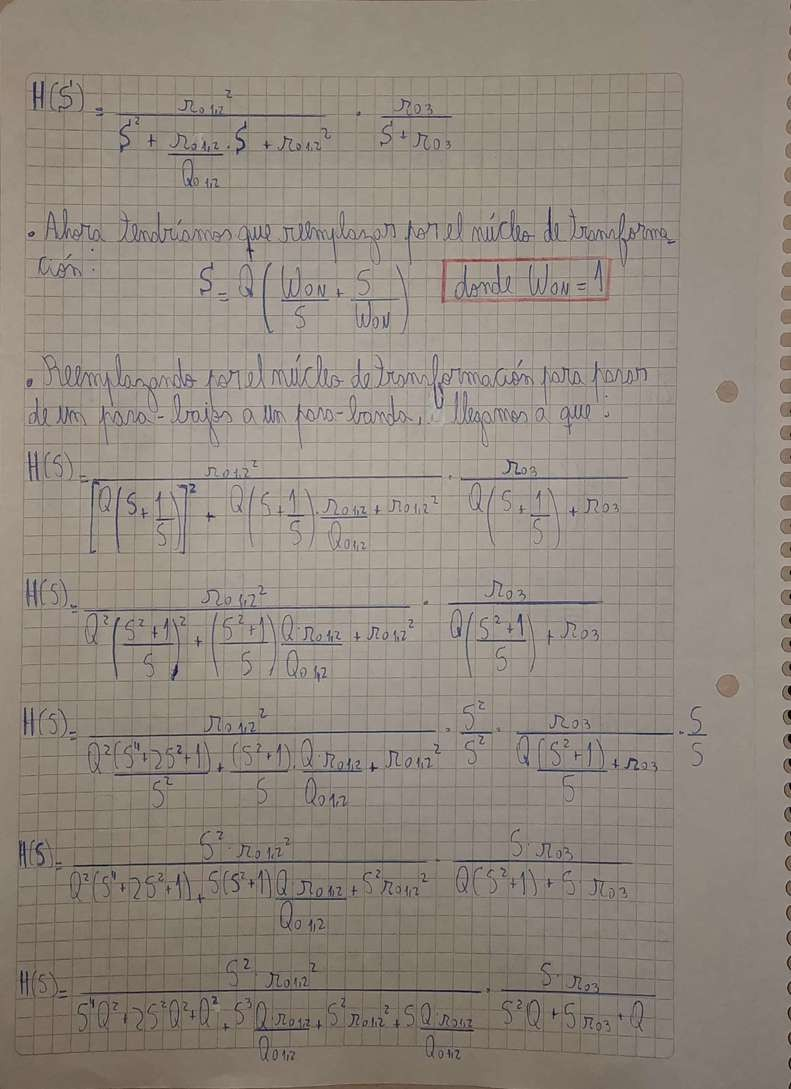 H(S) = r₀₁,₂² / (S² + (r₀₁,₂ / Q₀₁,₂) · S + r₀₁,₂²) · r₀₃ / (S + r₀₃)
• Ahora tendríamos que reemplazar por el núcleo de transforma-
ción:
S = Q(W₀N / S + S / W₀N) donde W₀N = 1
• Reemplazando por el núcleo de transformación para pasar
de un pasa-bajos a un pasa-banda, llegamos a que:
H(S) = r₀₁,₂² / ([Q(S + 1/S)]² + Q(S + 1/S) · r₀₁,₂ / Q₀₁,₂ + r₀₁,₂²) · r₀₃ / (Q(S + 1/S) + r₀₃)
H(S) = r₀₁,₂² / (Q²((S²+1) / S)² + ((S²+1) / S) Q · r₀₁,₂ / Q₀₁,₂ + r₀₁,₂²) · r₀₃ / (Q((S²+1) / S) + r₀₃)
H(S) = r₀₁,₂² / (Q²(S⁴+2S²+1) / S² + (S²+1) / S · Q · r₀₁,₂ / Q₀₁,₂ + r₀₁,₂²) · S² / S² · r₀₃ / (Q(S²+1) / S + r₀₃) · S / S
H(S) = S² · r₀₁,₂² / (Q²(S⁴+2S²+1) + S(S²+1) Q · r₀₁,₂ / Q₀₁,₂ + S² r₀₁,₂²) · S · r₀₃ / (Q(S²+1) + S · r₀₃)
H(S) = S² · r₀₁,₂² / (S⁴Q² + 2S²Q² + Q² + S³ Q · r₀₁,₂ / Q₀₁,₂ + S² r₀₁,₂² + S Q · r₀₁,₂ / Q₀₁,₂) · S · r₀₃ / (S²Q + S r₀₃ + Q)